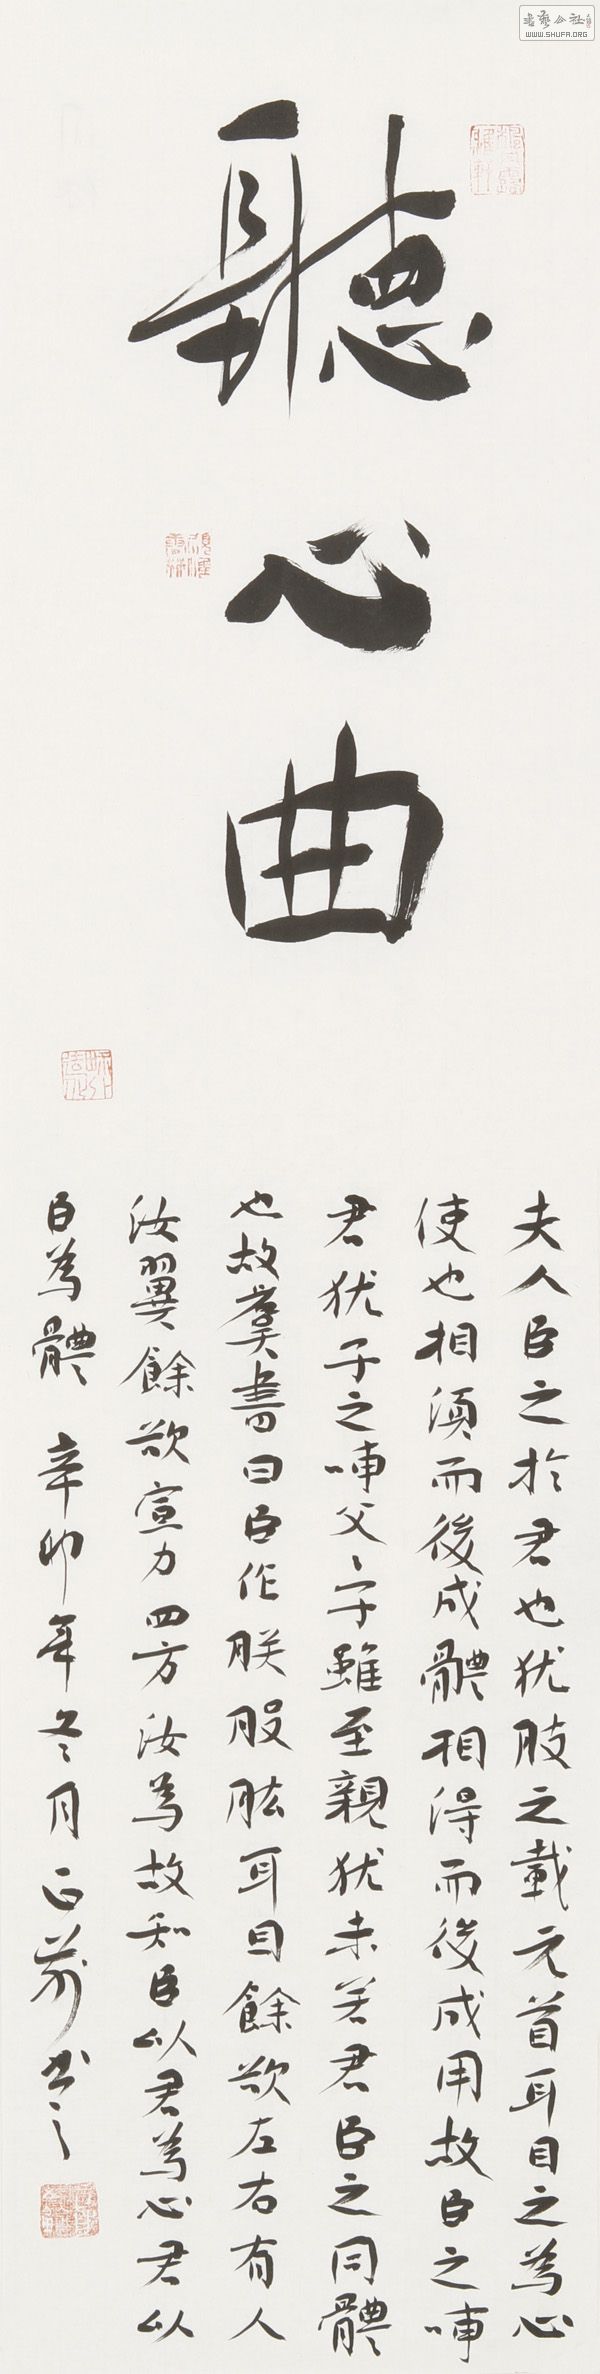 書藝公社
WWW.SHUFA.ORG
聽心曲
夫人臣之於君也犹肢之載元首耳目之為心
使也相湏而後成體相得而後成用故臣之事
君犹子之事父〻子雖至親犹未若君臣之同體
也故羣書曰臣作朕股肱耳目餘欲左右有人
汝翼餘欲宣力四方汝為故知臣以君為心君以
臣為體 辛卯年冬月正書之